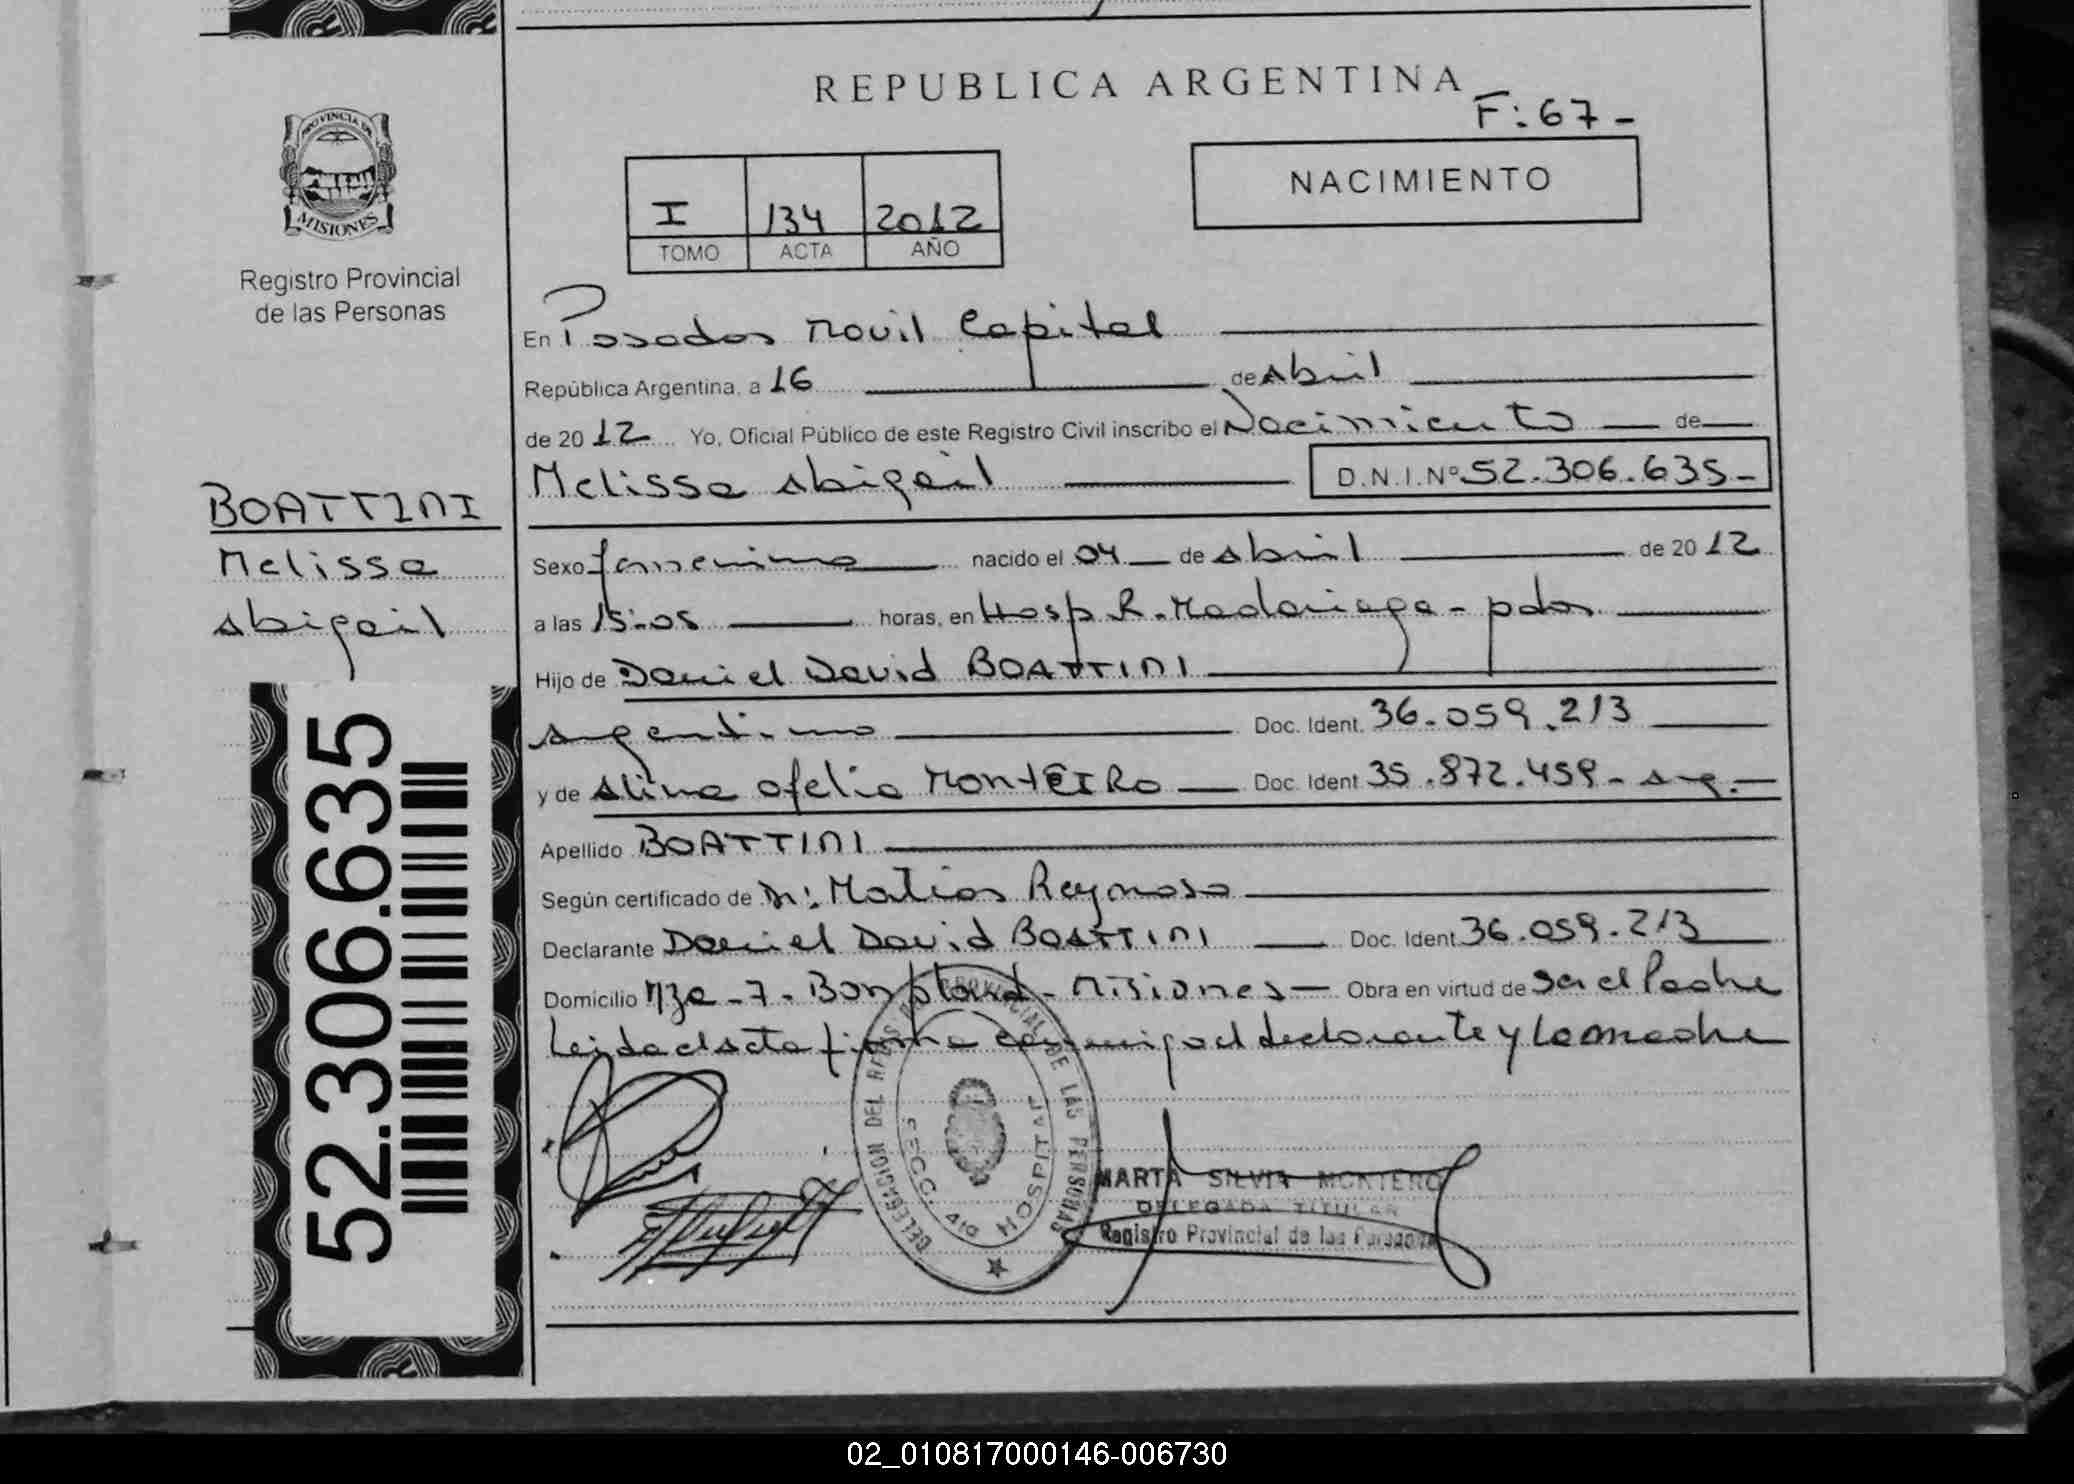 REPUBLICA ARGENTINA
F: 67 -
PROVINCIA DE
MISIONES
Registro Provincial
de las Personas
I 134 2012
TOMO ACTA AÑO
NACIMIENTO
En Posadas Movil Capital
República Argentina, a 16 de Abril
de 20 12 Yo, Oficial Público de este Registro Civil inscribo el Nacimiento de
Melissa Abigail D.N.I.Nº 52.306.635-
BOATTINI
Melissa
Abigail
52.306.635
Sexo femenino nacido el 04 de Abril de 20 12
a las 15:05 horas, en Hosp R. Madariaga - pdas
Hijo de Daniel David BOATTINI
Argentino Doc. Ident. 36.059.213
y de Alina Ofelia MONTEIRO Doc. Ident 35.872.459 - arg.
Apellido BOATTINI
Según certificado de Dr: Matias Reynoso
Declarante Daniel David BOATTINI Doc. Ident 36.059.213
Domicilio Mza - 7 - Bonpland - Misiones Obra en virtud de ser el Padre
Leida el acta firma conmigo el declarante y la madre
DELEGACION DEL REGISTRO PROVINCIAL DE LAS PERSONAS
SECC. 4ta HOSPITAL
MARTA SILVIA MONTERO
DELEGADA TITULAR
Registro Provincial de las Personas
02_010817000146-006730